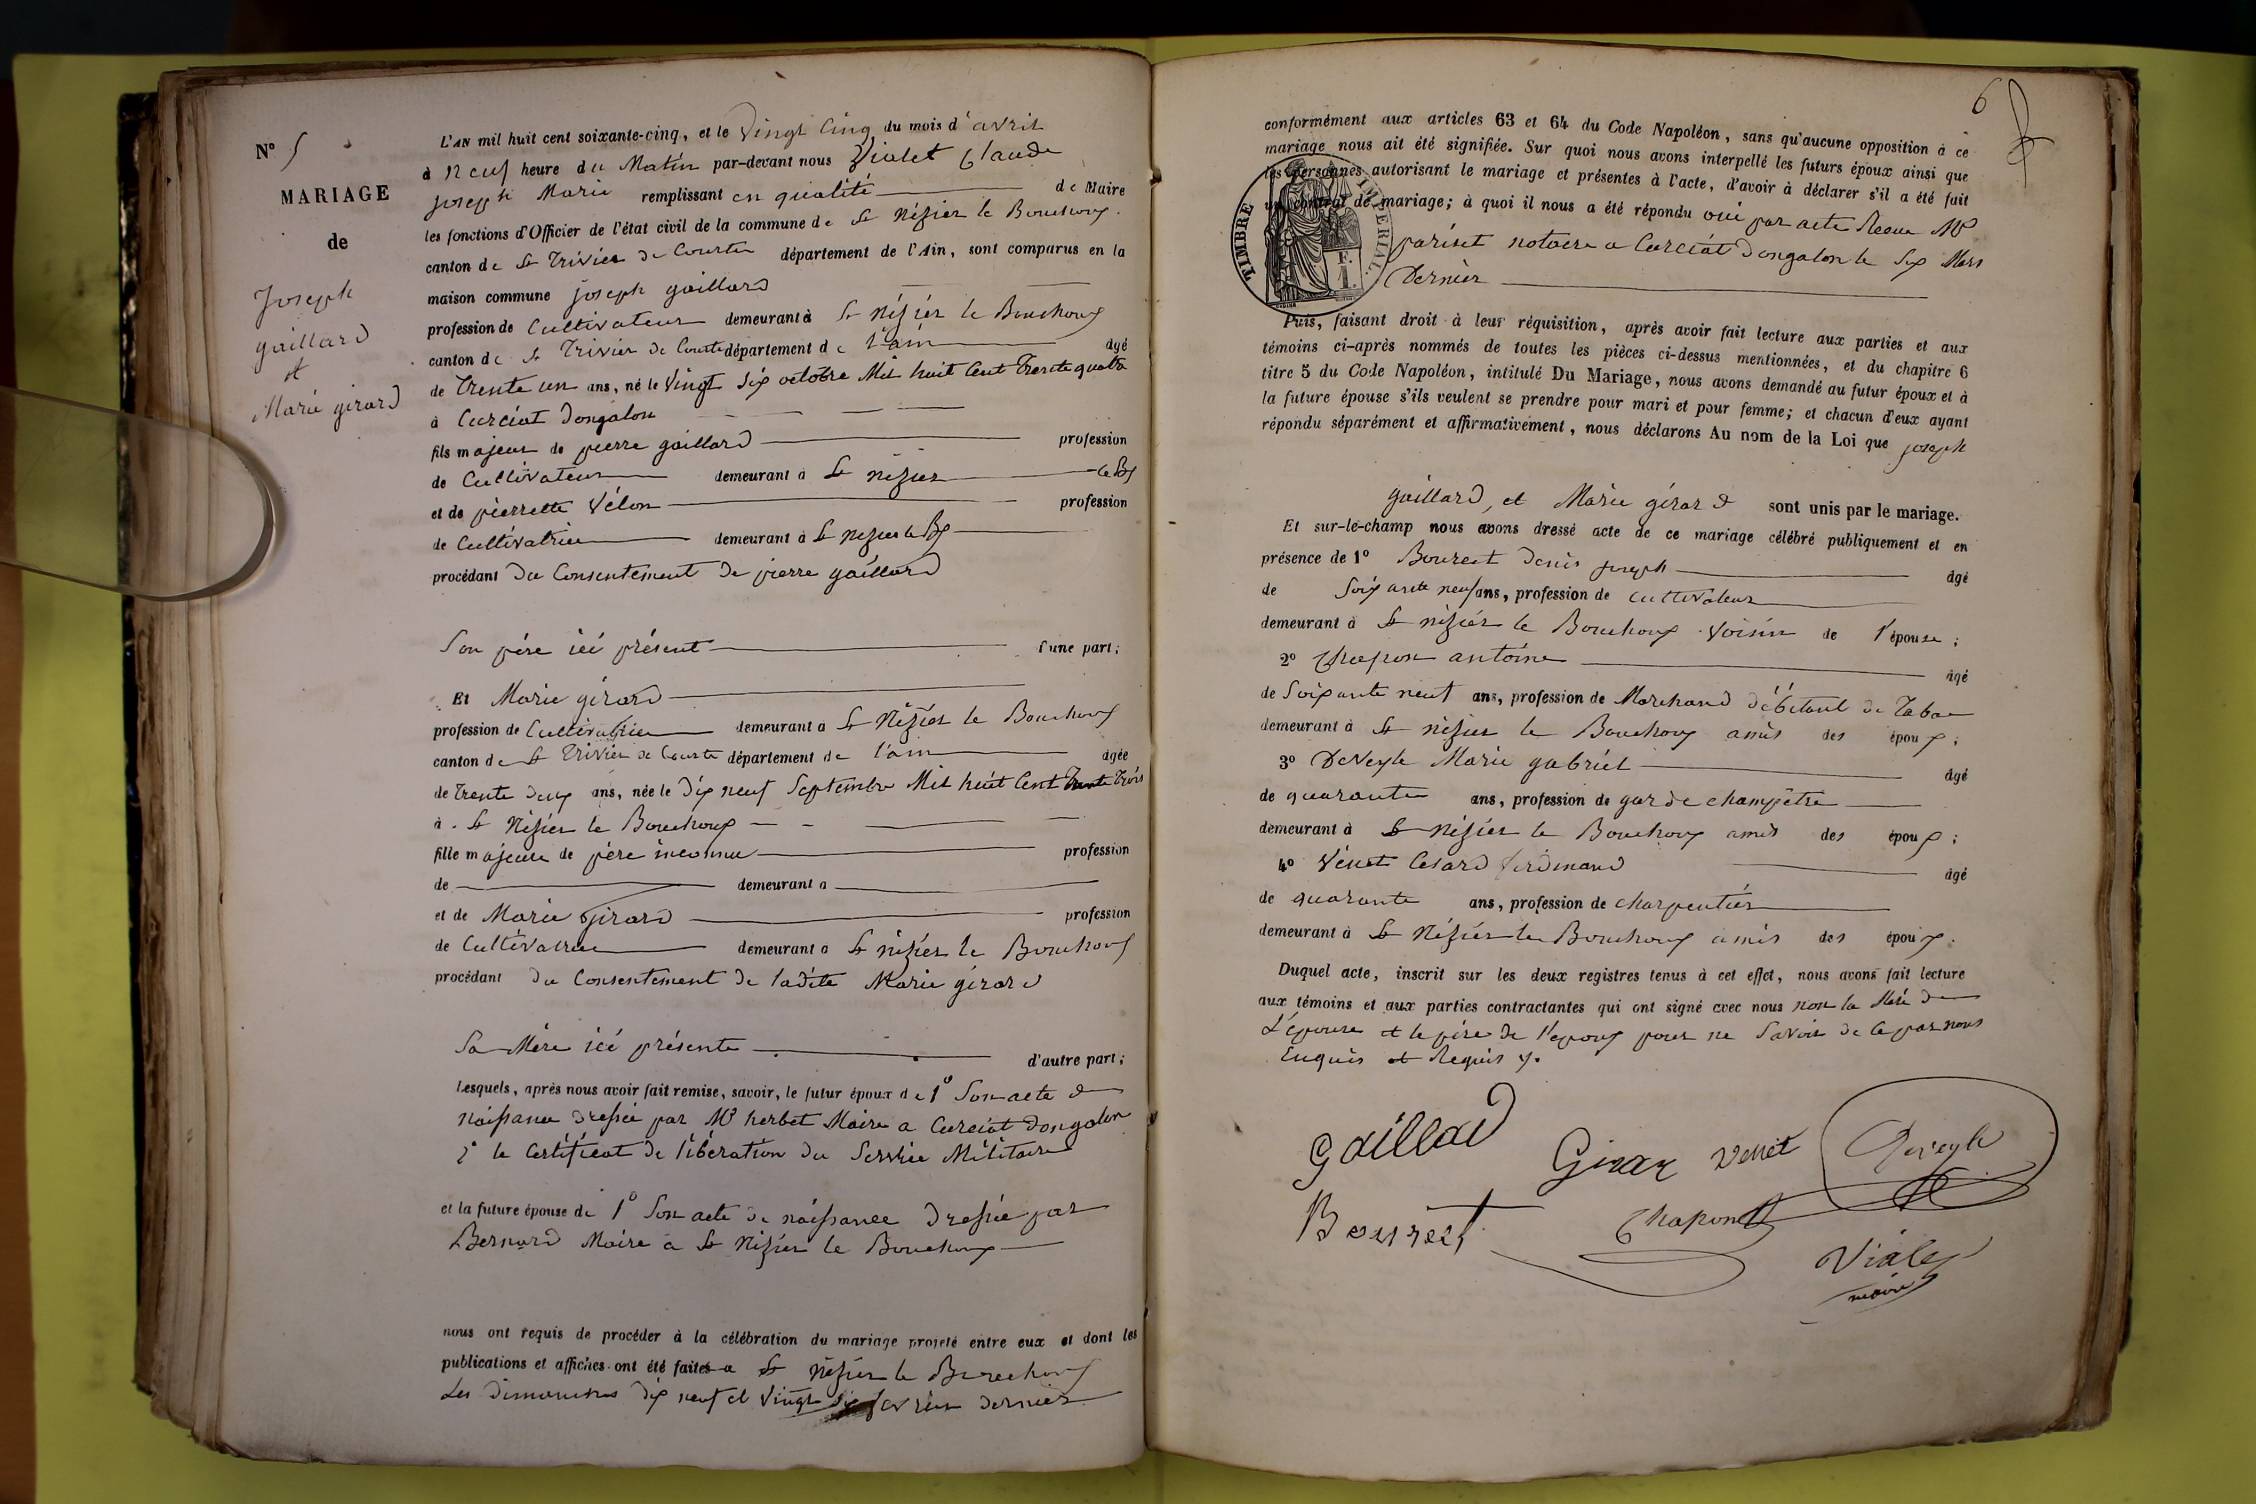 N° 5
MARIAGE
de
Joseph
gaillard
et
Marie girard
L'AN mil huit cent soixante-cinq, et le Vingt Cinq du mois d'avril
à neuf heure du Matin par-devant nous Vialet Claude
joseph Marie remplissant en qualité de Maire
les fonctions d'Officier de l'état civil de la commune de St Nizier le Bouchoux
canton de St Trivier de Courte département de l'Ain, sont comparus en la
maison commune joseph gaillard
profession de Cultivateur demeurant à St Nizier le Bouchoux
canton de St Trivier de Courte département de l'ain âgé
de Trente un ans, né le Vingt Six octobre Mil huit Cent Trente quatre
à Curciat dongalon
fils majeur de pierre gaillard profession
de Cultivateur demeurant à St nizier le Bx
et de pierrette Vélon profession
de Cultivatrice demeurant à St Nizier le Bx
procédant du Consentement de pierre gaillard
Son père icé présent d'une part;
Et Marie girard
profession de Cultivatrice demeurant à St Nizier le Bouchoux
canton de St Trivier de Courte département de l'ain âgée
de Trente deux ans, née le Dix neuf Septembre Mil huit Cent Trente Trois
à St Nizier le Bouchoux
fille majeure de père inconnu profession
de demeurant à
et de Marie Girard profession
de Cultivatrice demeurant à St nizier le Bouchoux
procédant du Consentement de ladite Marie girard
Sa Mère icé présente d'autre part;
Lesquels, après nous avoir fait remise, savoir, le futur époux de 1° Son acte de
naissance dressée par Mr herbet Maire a Curciat Dongalon
2° le Certificat de libération du Service Militaire
et la future épouse de 1° Son acte de naissance dressée par
Bernard Maire à St Nizier le Bouchoux
nous ont requis de procéder à la célébration du mariage projeté entre eux et dont les
publications et affiches ont été faites a St Nizier le Bouchoux
Les dimanches dix neuf et Vingt six fevrier dernier
6
conformément aux articles 63 et 64 du Code Napoléon, sans qu'aucune opposition à ce
mariage nous ait été signifiée. Sur quoi nous avons interpellé les futurs époux ainsi que
les personnes autorisant le mariage et présentes à l'acte, d'avoir à déclarer s'il a été fait
un contrat de mariage; à quoi il nous a été répondu oui par acte Recue Me
pariset notaire a Curciat Dongalon le Six Mars
Dernier
TIMBRE IMPERIAL
Puis, faisant droit à leur réquisition, après avoir fait lecture aux parties et aux
témoins ci-après nommés de toutes les pièces ci-dessus mentionnées, et du chapitre 6
titre 5 du Code Napoléon, intitulé Du Mariage, nous avons demandé au futur époux et à
la future épouse s'ils veulent se prendre pour mari et pour femme; et chacun d'eux ayant
répondu séparément et affirmativement, nous déclarons Au nom de la Loi que joseph
gaillard, et Marie girard sont unis par le mariage.
Et sur-le-champ nous avons dressé acte de ce mariage célébré publiquement et en
présence de 1° Bourect Denis joseph âgé
de Soixante neuf ans, profession de Cultivateur
demeurant à St nizier le Bouchoux voisin de l'épouse;
2° Chapon antoine âgé
de Soixante neuf ans, profession de Marchand débitant de Tabac
demeurant à St nizier le Bouchoux amis des époux;
3° Deveyle Marie gabriel âgé
de quarante ans, profession de garde champêtre
demeurant à St Nizier le Bouchoux amis des époux;
4° Venet Cesard ferdinand âgé
de quarante ans, profession de charpentier
demeurant à St Nizier le Bouchoux amis des époux.
Duquel acte, inscrit sur les deux registres tenus à cet effet, nous avons fait lecture
aux témoins et aux parties contractantes qui ont signé avec nous non la Mère de
L'épouse et le père de l'epoux pour ne Savoir de ce par nous
Enquis et Requis
Gaillard Girar Venet Deveyle
Bourect Chapon
Vialet
maire